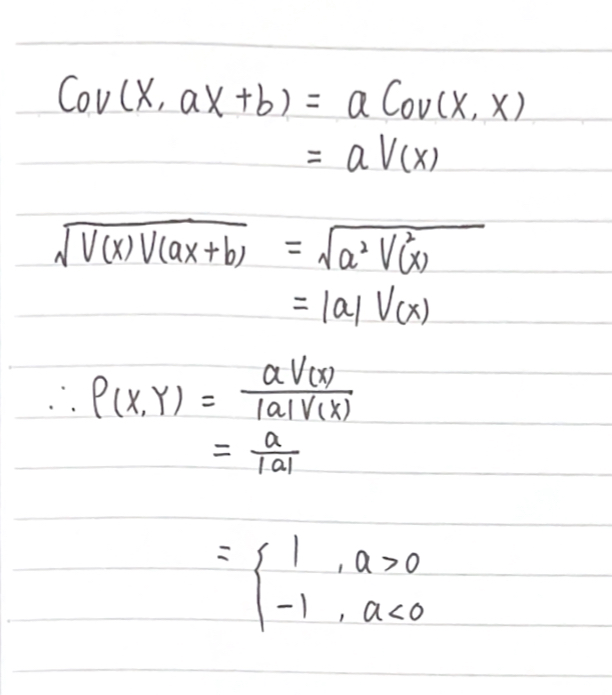 Cov(X, aX+b) = a Cov(X, X)
= a V(X)
√V(X)V(aX+b) = √a² V²(X)
= |a| V(X)
∴ ρ(X,Y) = aV(X) / |a|V(X)
= a / |a|
= { 1 , a>0
-1 , a<0